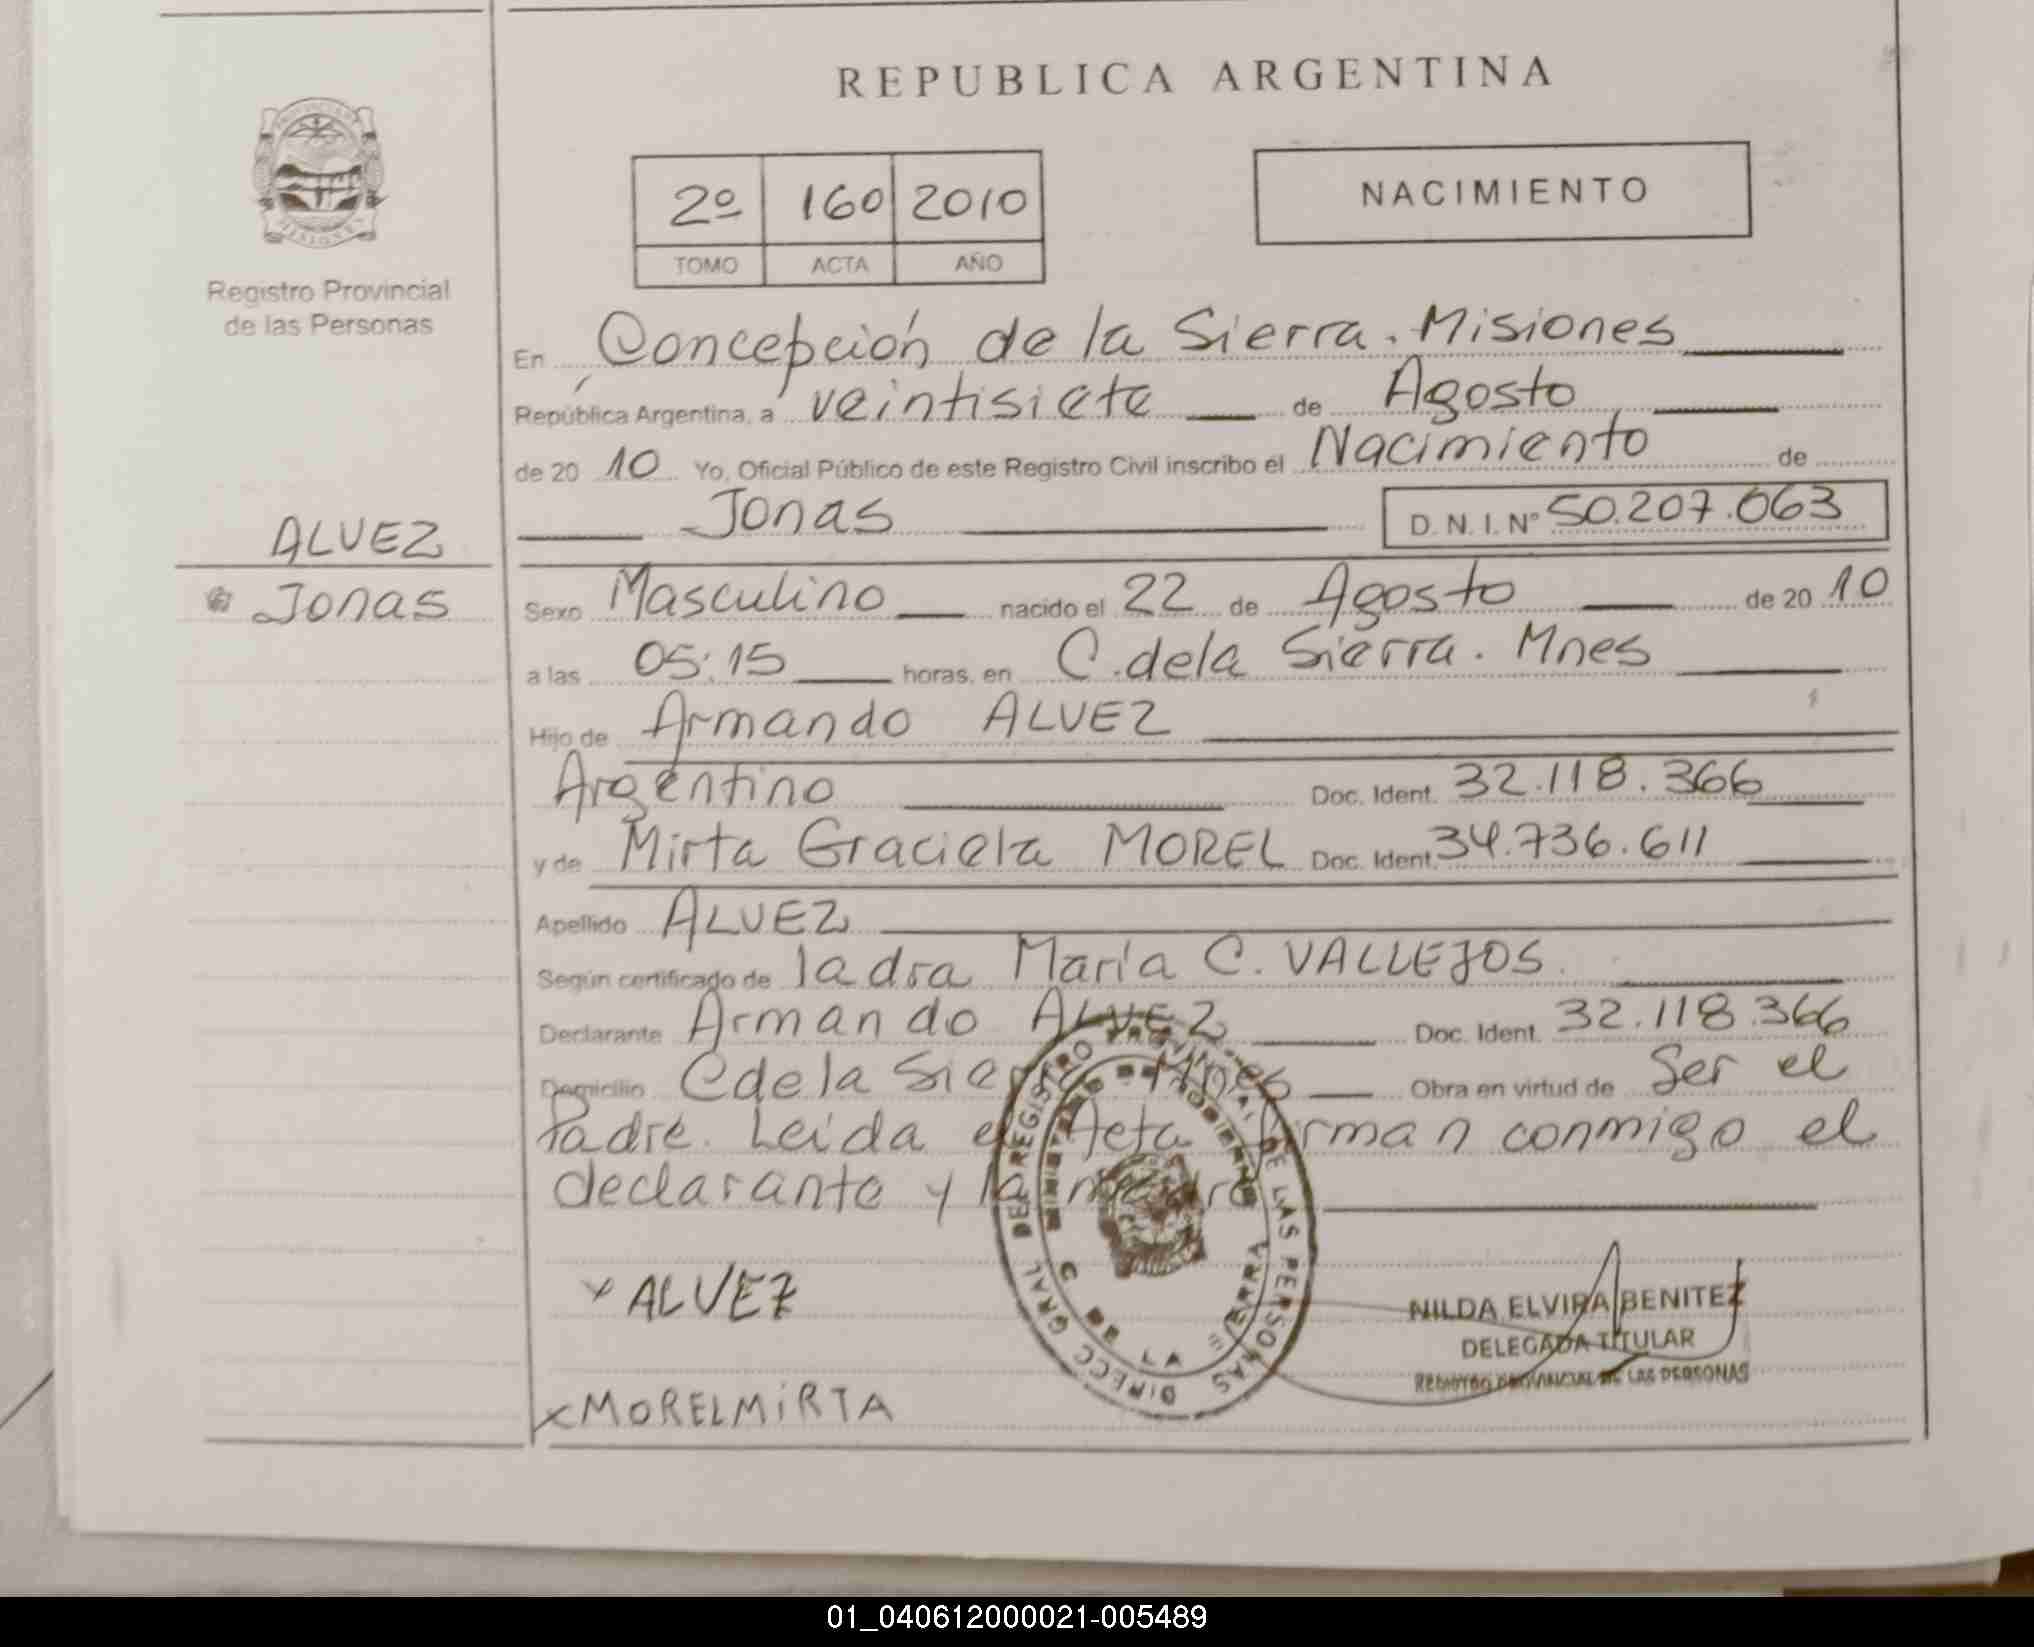 REPUBLICA ARGENTINA
2º 160 2010
TOMO ACTA AÑO
NACIMIENTO
Registro Provincial
de las Personas
ALVEZ
Jonas
En Concepción de la Sierra. Misiones
República Argentina, a veintisiete de Agosto
de 20 10 Yo, Oficial Público de este Registro Civil inscribo el Nacimiento de
Jonas D. N. I. Nº 50.207.063
Sexo Masculino nacido el 22 de Agosto de 20 10
a las 05:15 horas, en C. de la Sierra. Mnes
Hijo de Armando ALVEZ
Argentino Doc. Ident. 32.118.366
y de Mirta Graciela MOREL Doc. Ident. 34.736.611
Apellido ALVEZ
Según certificado de la dra María C. VALLEJOS.
Declarante Armando ALVEZ Doc. Ident. 32.118.366
Domicilio C de la Sierra Mnes Obra en virtud de Ser el
Padre. Leida el Acta firman conmigo el
declarante y la madre
x ALVEZ
x MOREL MiRTA
DIRECC GRAL DEL REGISTRO PROVINCIAL DE LAS PERSONAS
MINISTERIO DE GOBIERNO
C DE LA SIERRA
NILDA ELVIRA BENITEZ
DELEGADA TITULAR
REGISTRO PROVINCIAL DE LAS PERSONAS
01_040612000021-005489